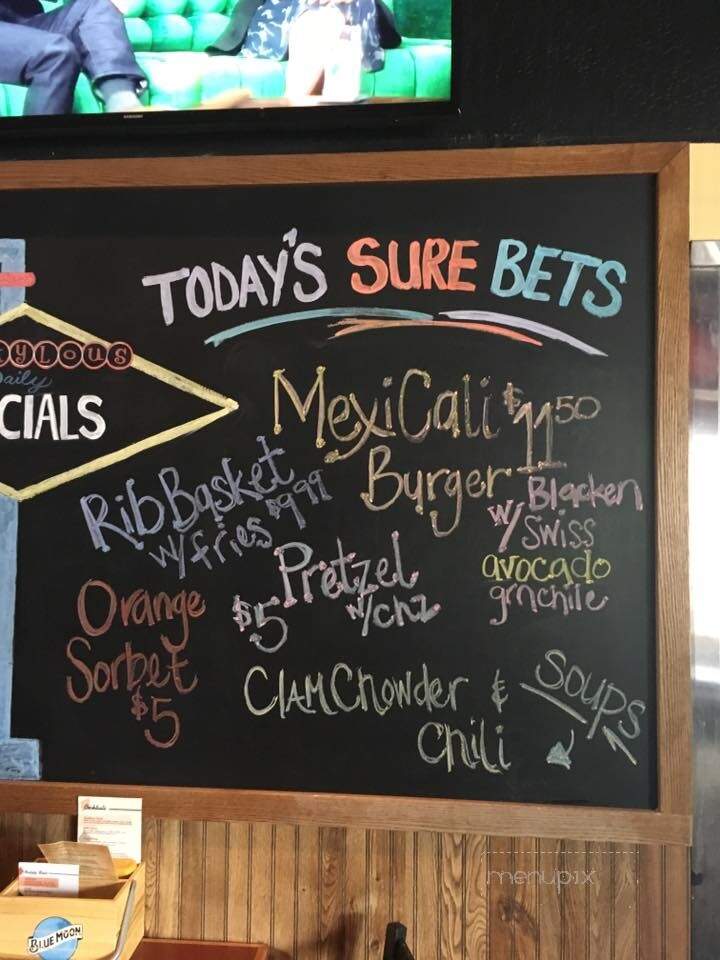 SAMSUNG
TODAY'S SURE BETS
YLOUS
Daily
CIALS
MexiCali $11.50
Burger
w/ Blacken
Swiss
avocado
grnchile
Rib Basket
w/fries $9.99
Pretzel
$5 w/chz
Orange
Sorbet
$5
Clam Chowder &
Chili
Soups
Cocktails
BLUE MOON
menupix